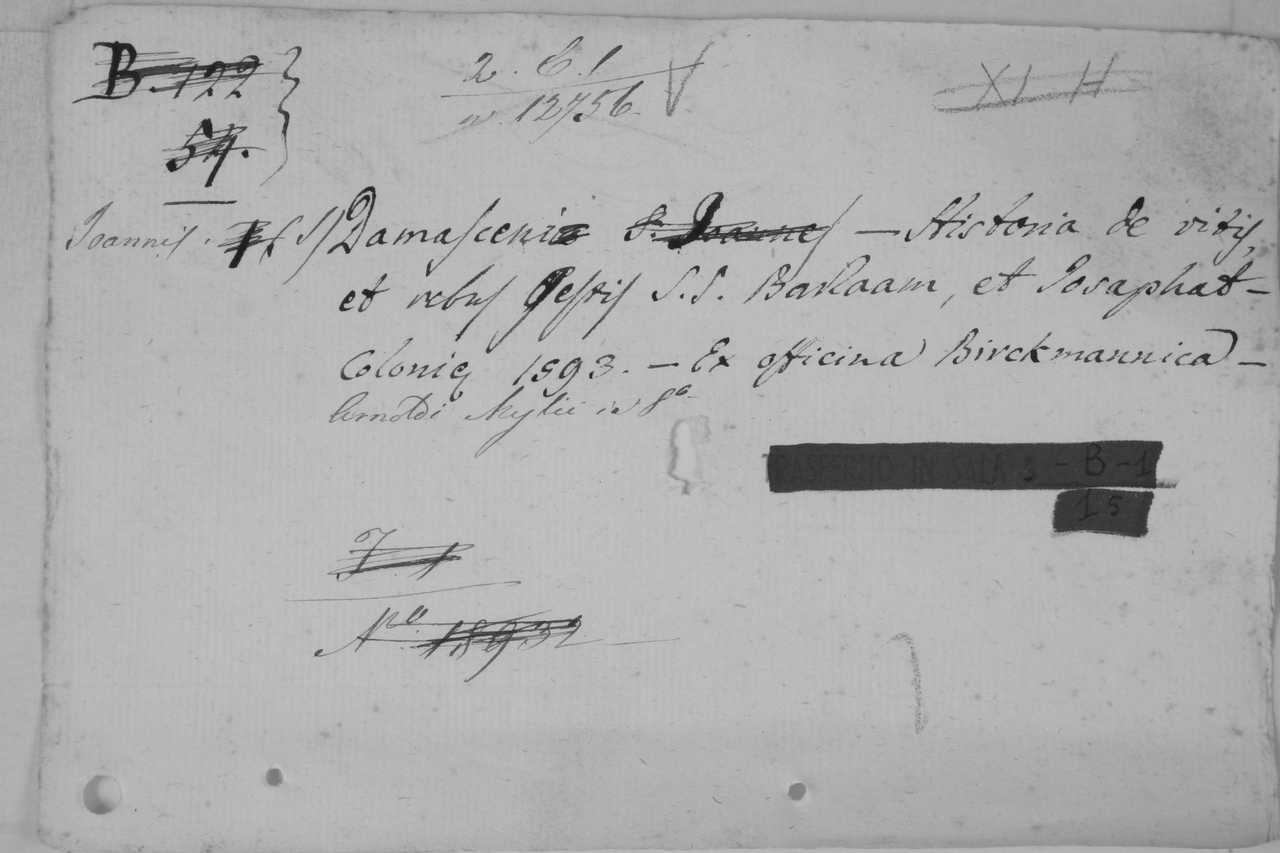 B. 122
54.
2. C. 1
n. 12756
XI H
Joannis S. Damasceni S. Joannes — Historia de vitis,
et rebus gestis S.S. Barlaam, et Josaphat —
Coloniæ 1593. — Ex officina Birckmannica —
Arnoldi Mylii in 8º
TRASFERITO IN SALA 3 - B - 1
15
Nº 18932